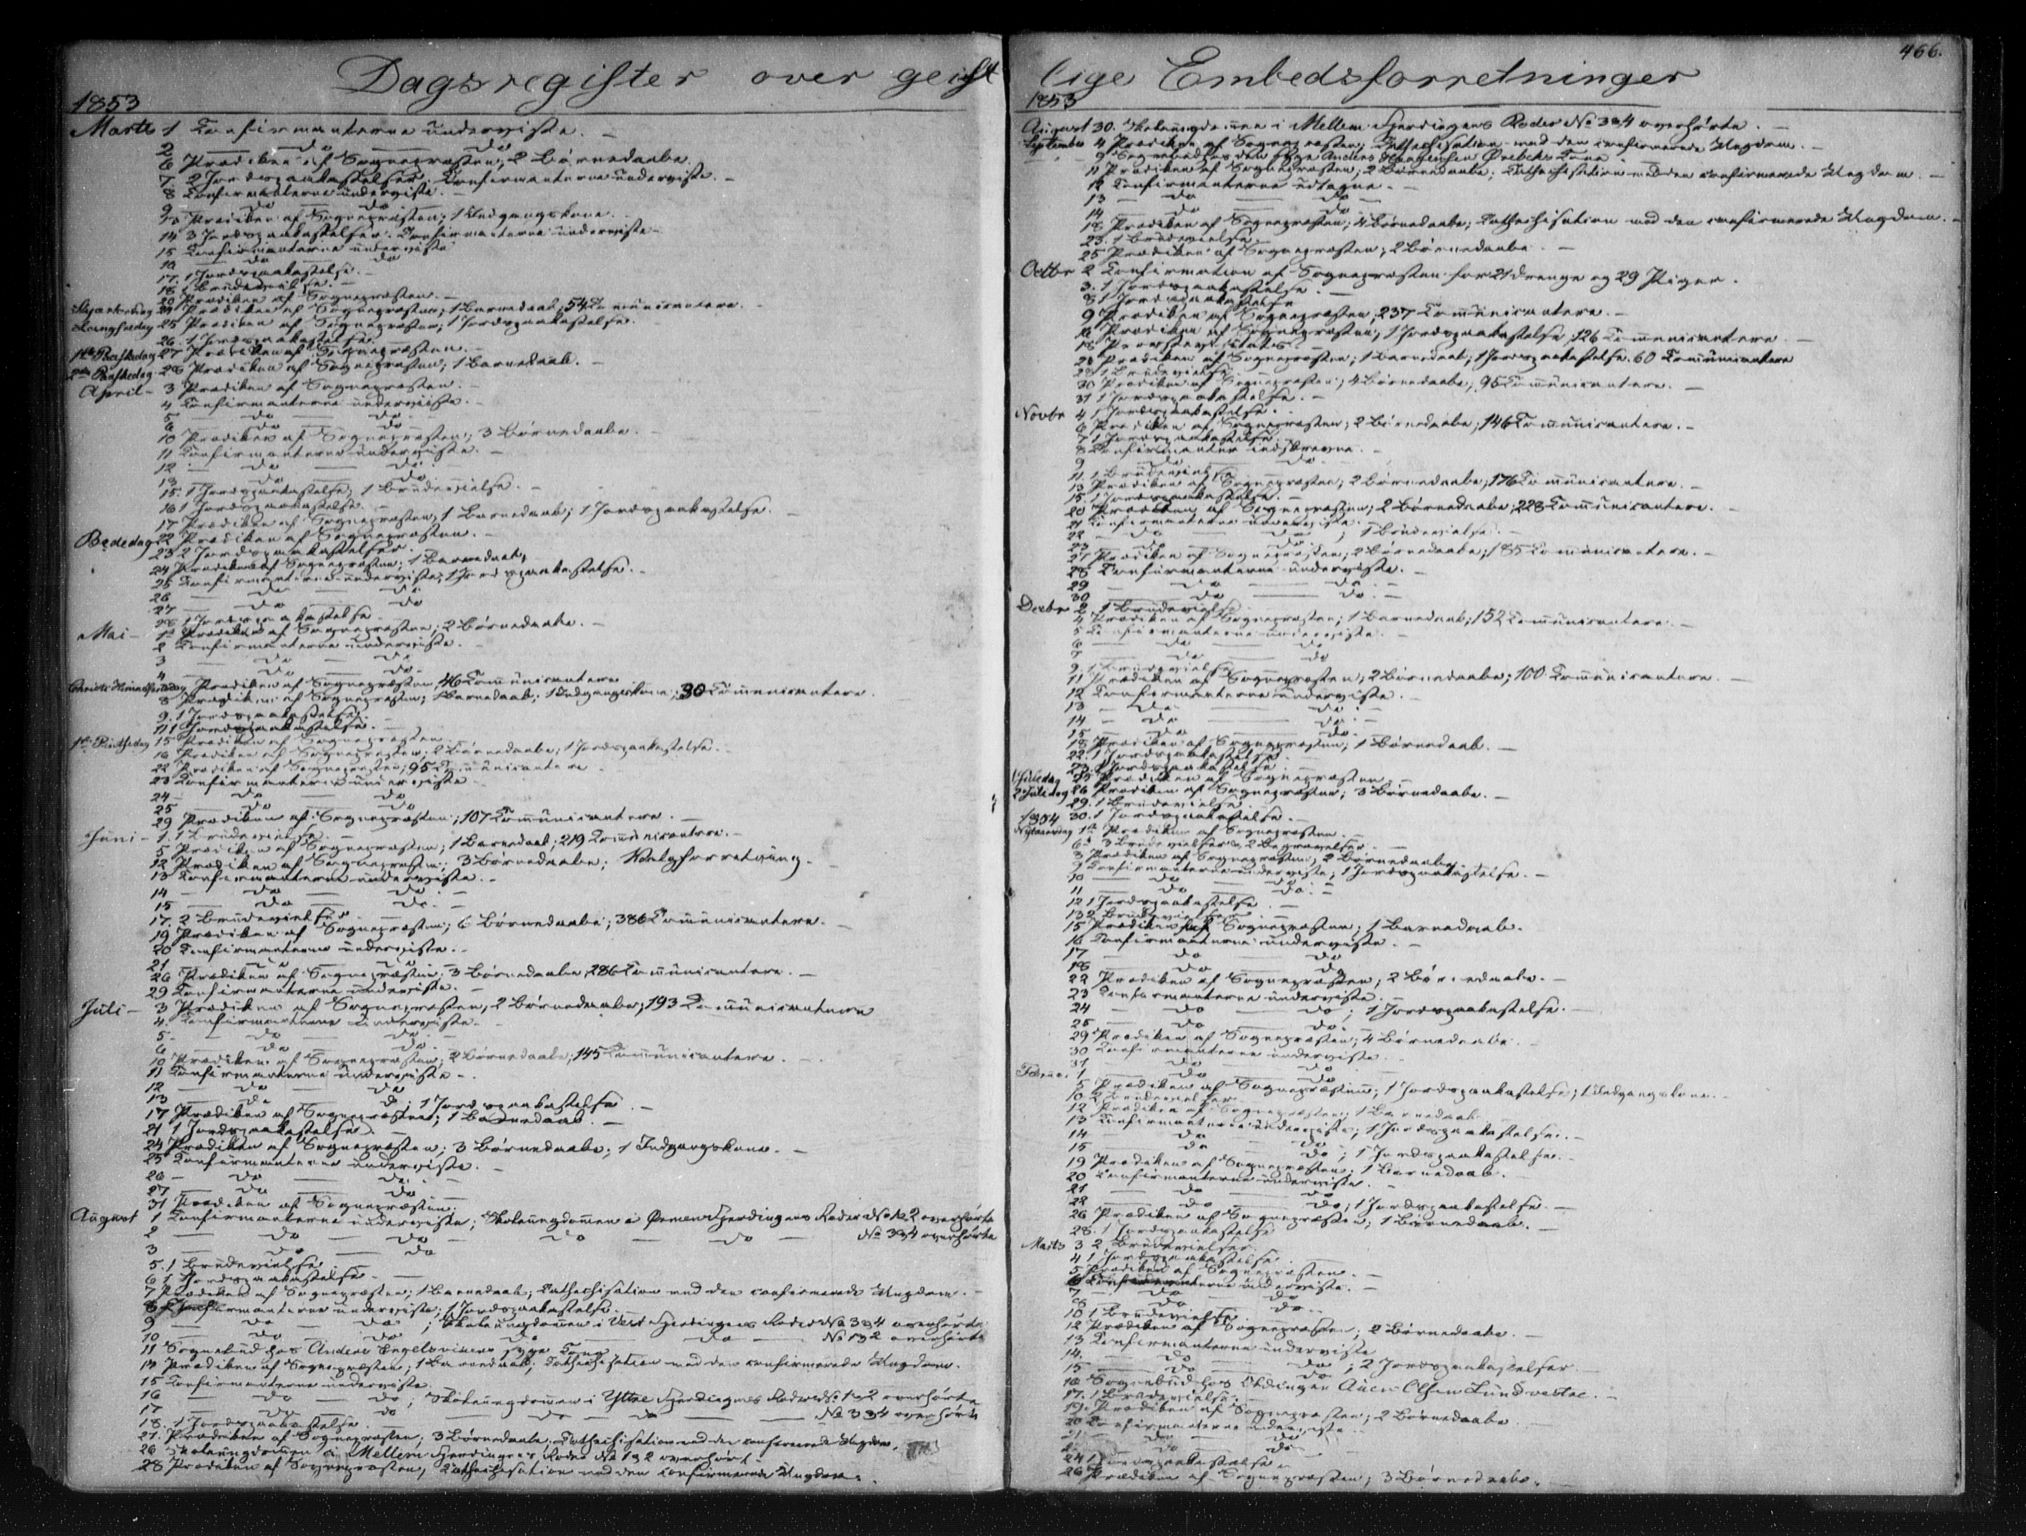 466.
Dagsregister over geistlige Embedsforretninger
1853
Marts 1 Confirmanterne underviste. —
2 — do — do
6 Prædiken af Sognepræsten; 2 Børnedaabe.
7 2 Jordspaakastelser; Confirmanterne underviste. —
8 Confirmanterne underviste. —
9 — do — do. —
13 Prædiken af Sognepræsten; 1 Indgangskone.
14 3 Jordspaakastelser. Confirmanterne underviste —
15 Confirmanterne underviste
16 — do — do
17. 1 Jordspaakastelse. —
18. 1 Brudevielse. —
20 Prædiken af Sognepræsten. —
Skjærtorsdag 24 Prædiken af Sognepræsten; 1 Barnedaab; 54 Communicantere. —
Langfredag 25 Prædiken af Sognepræsten; 1 Jordspaakastelse.
26. 1 Jordspaakastelse.
1ste Paaskedag 27 Prædiken af Sognepræsten. —
2den Paaskedag 28 Prædiken af Sognepræsten; 1 Barnedaab. —
April — 3 Prædiken af Sognepræsten. —
4 Confirmanterne underviste. —
5 — do — do. —
6 — do — do. —
10 Prædiken af Sognepræsten; 3 Børnedaabe. —
11 Confirmanterne underviste. —
12 — do — do. —
13 — do — do. —
15. 1 Jordspaakastelse; 1 Brudevielse. —
16 1 Jordspaakastelse. —
17 Prædiken af Sognepræsten; 1 Barnedaab; 1 Jordspaakastelse. —
Bededag 22 Prædiken af Sognepræsten. —
23 2 Jordspaakastelser.
24 Prædiken af Sognepræsten; 1 Barnedaab;
25 Confirmanterne underviste; 1 Jordspaakastelse. —
26 — do — do
27 — do — do
28 1 Jordspaakastelse
Mai — 1ste Prædiken af Sognepræsten; 2 Børnedaabe. —
2 Confirmanterne underviste. —
3 — do — do
4 — do — do. —
Christi Himmelfartsdag Prædiken af Sognepræsten 46 Communicantere
8 Prædiken af Sognepræsten; 1 Barnedaab; 1 Indgangskone; 30 Communicantere.
9. 1 Jordspaakastelse. —
11 1 Jordspaakastelse. —
1ste Pintsedag 15 Prædiken af Sognepræsten
16 Prædiken af Sognepræsten; 2 Børnedaabe; 1 Jordspaakastelse. —
22 Prædiken af Sognepræsten; 95 Communicantere
23 Confirmanterne underviste. —
24 — do — do
25 — do — do
29 Prædiken af Sognepræsten; 107 Communicantere. —
Juni — 1. 1 Brudevielse. —
5 Prædiken af Sognepræsten; 1 Barnedaab; 219 Communicantere. —
12 Prædiken af Sognepræsten; 3 Børnedaabe; Valgforretning. —
13 Confirmanterne underviste. —
14 — do — do. —
15 — do — do. —
17. 2 Brudevielser. —
19 Prædiken af Sognepræsten; 6 Børnedaabe; 386 Communicantere. —
20 Confirmanterne underviste. —
21 — do — do
26 Prædiken af Sognepræsten; 3 Børnedaabe, 286 Communicantere. —
29 Confirmanterne underviste. —
Juli — 3 Prædiken af Sognepræsten, 2 Børnedaabe; 193 Communicantere
4. Confirmanterne underviste. —
5 — do — do. —
6 — do — do. —
10 Prædiken af Sognepræsten; 2 Børnedaabe; 145 Communicantere. —
11 Confirmanterne underviste —.
12 — do — do
13 — do — do; 1 Jordspaakastelse. —
17 Prædiken af Sognepræsten; 1 Barnedaab. —
21 1 Jordspaakastelse. —
24 Prædiken af Sognepræsten; 3 Børnedaabe; 1 Indgangskone. —
25 Confirmanterne underviste. —
26 — do — do. —
27 — do — do
31 Prædiken af Sognepræsten;
August 1 Confirmanterne underviste; Skoleungdommen i Fjerdingens Roder No 1 & 2 overhørte
2 — do — do — do — do — No 3 & 4 overhørte
3 — do — do
5. 1 Brudevielse. —
6 1 Jordspaakastelse. —
7 Prædiken af Sognepræsten; 1 Barnedaab; Cathechisation med den confirmerede Ungdom. —
8 Confirmanterne underviste; 1 Jordspaakastelse. —
9 — do — do; Skoleungdommen i Vest Fjerdingens Roder No 3 & 4 overhørte
10 — do — do — do — do — No 1 & 2 overhørte
11 Sognebud hos Anders syge Kone
14 Prædiken af Sognepræsten; 1 Barnedaab; Cathechisation med den confirmerede Ungdom.
15 Confirmanterne underviste.
16 — do — do; Skoleungdommen i Yttre Fjerdingens Roder No 1 & 2 overhørte
17 — do — do — do — do — No 3 & 4 overhørte
18. 1 Jordspaakastelse. —
21. Prædiken af Sognepræsten; 3 Børnedaabe. Cathechisation med den confirmerede Ungdom.
26 Skoleungdommen i Mellem Fjerdingens Roder No 1 & 2 overhørt
28 Prædiken af Sognepræsten; Cathechisation med den confirmerede Ungdom.
1853
August 30. Skoleungdommen i Mellem Fjerdingens Roder No 3 & 4 overhørte. —
September 4 Prædiken af Sognepræsten; Cathechisation med den confirmerede Ungdom. —
9 Sognebud hos den syge Anders Kone
11 Prædiken af Sognepræsten; 2 Børnedaabe; Cathechisation med den confirmerede Ungdom. —
12 Confirmanterne udtagne. —
13 — do — do —
14 — do — do
18 Prædiken af Sognepræsten; 4 Børnedaabe; Cathechisation med den confirmerede Ungdom. —
23. 1 Brudevielse. —
25 Prædiken af Sognepræsten; 2 Børnedaabe. —
Octbr 2 Confirmation af Sognepræsten for 21 Drenge og 29 Piger.
3. 1 Jordspaakastelse. —
8 1 Jordspaakastelse
9 Prædiken af Sognepræsten; 237 Communicantere. —
16 Prædiken af Sognepræsten; 1 Jordspaakastelse, 126 Communicantere
23 Prædiken af Sognepræsten; 1 Barnedaab; 1 Jordspaakastelse. 60 Communicantere
28 1 Brudevielse
30 Prædiken af Sognepræsten; 4 Børnedaabe; 95 Communicantere. —
31 1 Jordspaakastelse. —
Novbr 4 1 Jordspaakastelse. —
6 Prædiken af Sognepræsten; 2 Børnedaabe; 146 Communicantere. —
7 1 Jordspaakastelse.
8 Confirmanter indskrevne. —
9 — do — do. —
11. 1 Brudevielse
13 Prædiken af Sognepræsten; 2 Børnedaabe; 176 Communicantere. —
15. 1 Jordspaakastelse. —
20 Prædiken af Sognepræsten; 2 Børnedaabe; 228 Communicantere. —
21 Confirmanterne underviste. —
22 — do — do; 1 Brudevielse. —
23 — do — do. —
27 Prædiken af Sognepræsten; 2 Børnedaabe; 185 Communicantere. —
28 Confirmanterne underviste. —
29 — do — do. —
30 — do — do. —
Decbr 2 1 Brudevielse
4 Prædiken af Sognepræsten; 1 Barnedaab; 152 Communicantere. —
5 Confirmanterne underviste. —
6 — do — do
7 — do — do
9. 1 Brudevielse
11 Prædiken af Sognepræsten; 2 Børnedaabe; 100 Communicantere. —
12 Confirmanterne underviste. —
13 — do — do. —
14 — do — do. —
15 — do — do. —
18 Prædiken af Sognepræsten; 1 Barnedaab. —
22. 1 Jordspaakastelse. —
23. 1 Jordspaakastelse. —
1 Juledag 25 Prædiken af Sognepræsten. —
2 Juledag 26 Prædiken af Sognepræsten; 3 Børnedaabe. —
29. 1 Brudevielse. —
30. 1 Jordspaakastelse. —
1854
Nytaarsdag 1ste Prædiken af Sognepræsten. —
6te 3 Brudevielser, 2 Begravelser. —
8 Prædiken af Sognepræsten; 2 Børnedaabe
9 Confirmanterne underviste; 1 Jordspaakastelse. —
10 — do — do. —
11 — do — do. —
12 1 Jordspaakastelse. —
13 2 Brudevielser. —
15 Prædiken af Sognepræsten; 1 Barnedaab.
16 Confirmanterne underviste. —
17 — do — do
18 — do — do
22 Prædiken af Sognepræsten; 2 Børnedaabe. —
23 Confirmanterne underviste. —
24 — do — do; 1 Jordspaakastelse. —
25 — do — do. —
29 Prædiken af Sognepræsten; 4 Børnedaabe. —
30 Confirmanterne underviste. —
31 — do — do
Februar 1 — do — do
5 Prædiken af Sognepræsten; 1 Jordspaakastelse; 1 Indgangskone. —
10 2 Brudevielser.
12 Prædiken af Sognepræsten; 1 Barnedaab
13 Confirmanterne underviste; 1 Jordspaakastelse. —
14 — do — do
15 — do — do; 1 Jordspaakastelse. —
19 Prædiken af Sognepræsten; 1 Barnedaab.
20 Confirmanterne underviste. —
21 — do — do
22 — do — do; 1 Jordspaakastelse. —
26 Prædiken af Sognepræsten; 1 Børnedaab. —
28. 1 Jordspaakastelse
Marts 3 2 Brudevielser.
4 1 Jordspaakastelse. —
5 Prædiken af Sognepræsten. —
6 Confirmanterne underviste. —
7 — do — do
8 — do — do. —
10 1 Brudevielse
12 Prædiken af Sognepræsten; 2 Børnedaabe. —
13 Confirmanterne underviste
14. — do — do
15 — do — do; 2 Jordspaakastelser
16 Sognebud hos Olsen Lundvestre.
17. 1 Brudevielse. —
19. Prædiken af Sognepræsten; 2 Børnedaabe
20 Confirmanterne underviste
21 — do — do
— do — do
24 1 Jordspaakastelse
26 Prædiken af Sognepræsten; 3 Børnedaabe. —